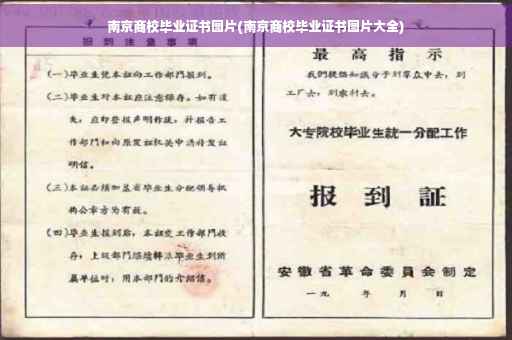 南京商校毕业证书图片(南京商校毕业证书图片大全)
报到注意事项
(一)毕业生凭本证向工作部门报到。
(二)毕业生对本证应注意保存。如有遗
失，应即登报声明作废，并报告工
作部门和向原发证机关申请补发证
明信。
(三)本证必须加盖省毕业生分配领导机
构公章方为有效。
(四)毕业生报到后，本证交工作部门收
存；上级部门
属单位时，用本部门的介绍信。
最高指示
我们提倡知识分子到群众中去，到
工厂去，到农村去。
大专院校毕业生统一分配工作
报到証
安徽省革命委員会制定
一九 年 月 日